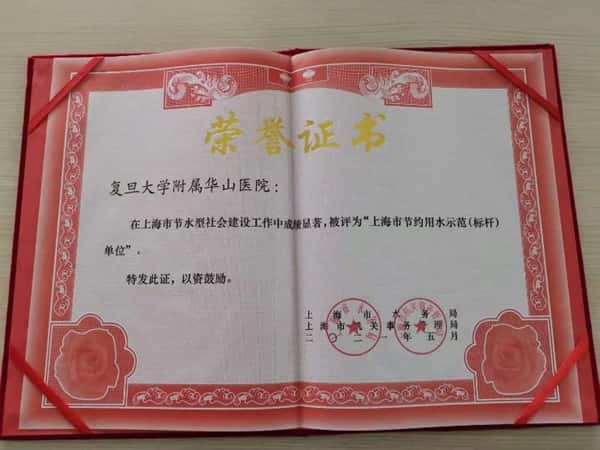 荣誉证书
复旦大学附属华山医院：
在上海市节水型社会建设工作中成绩显著，被评为“上海市节约用水示范（标杆）
单位”．
特发此证，以资鼓励。
上海市水务局
上海市机关事务管理局
二〇二一年五月